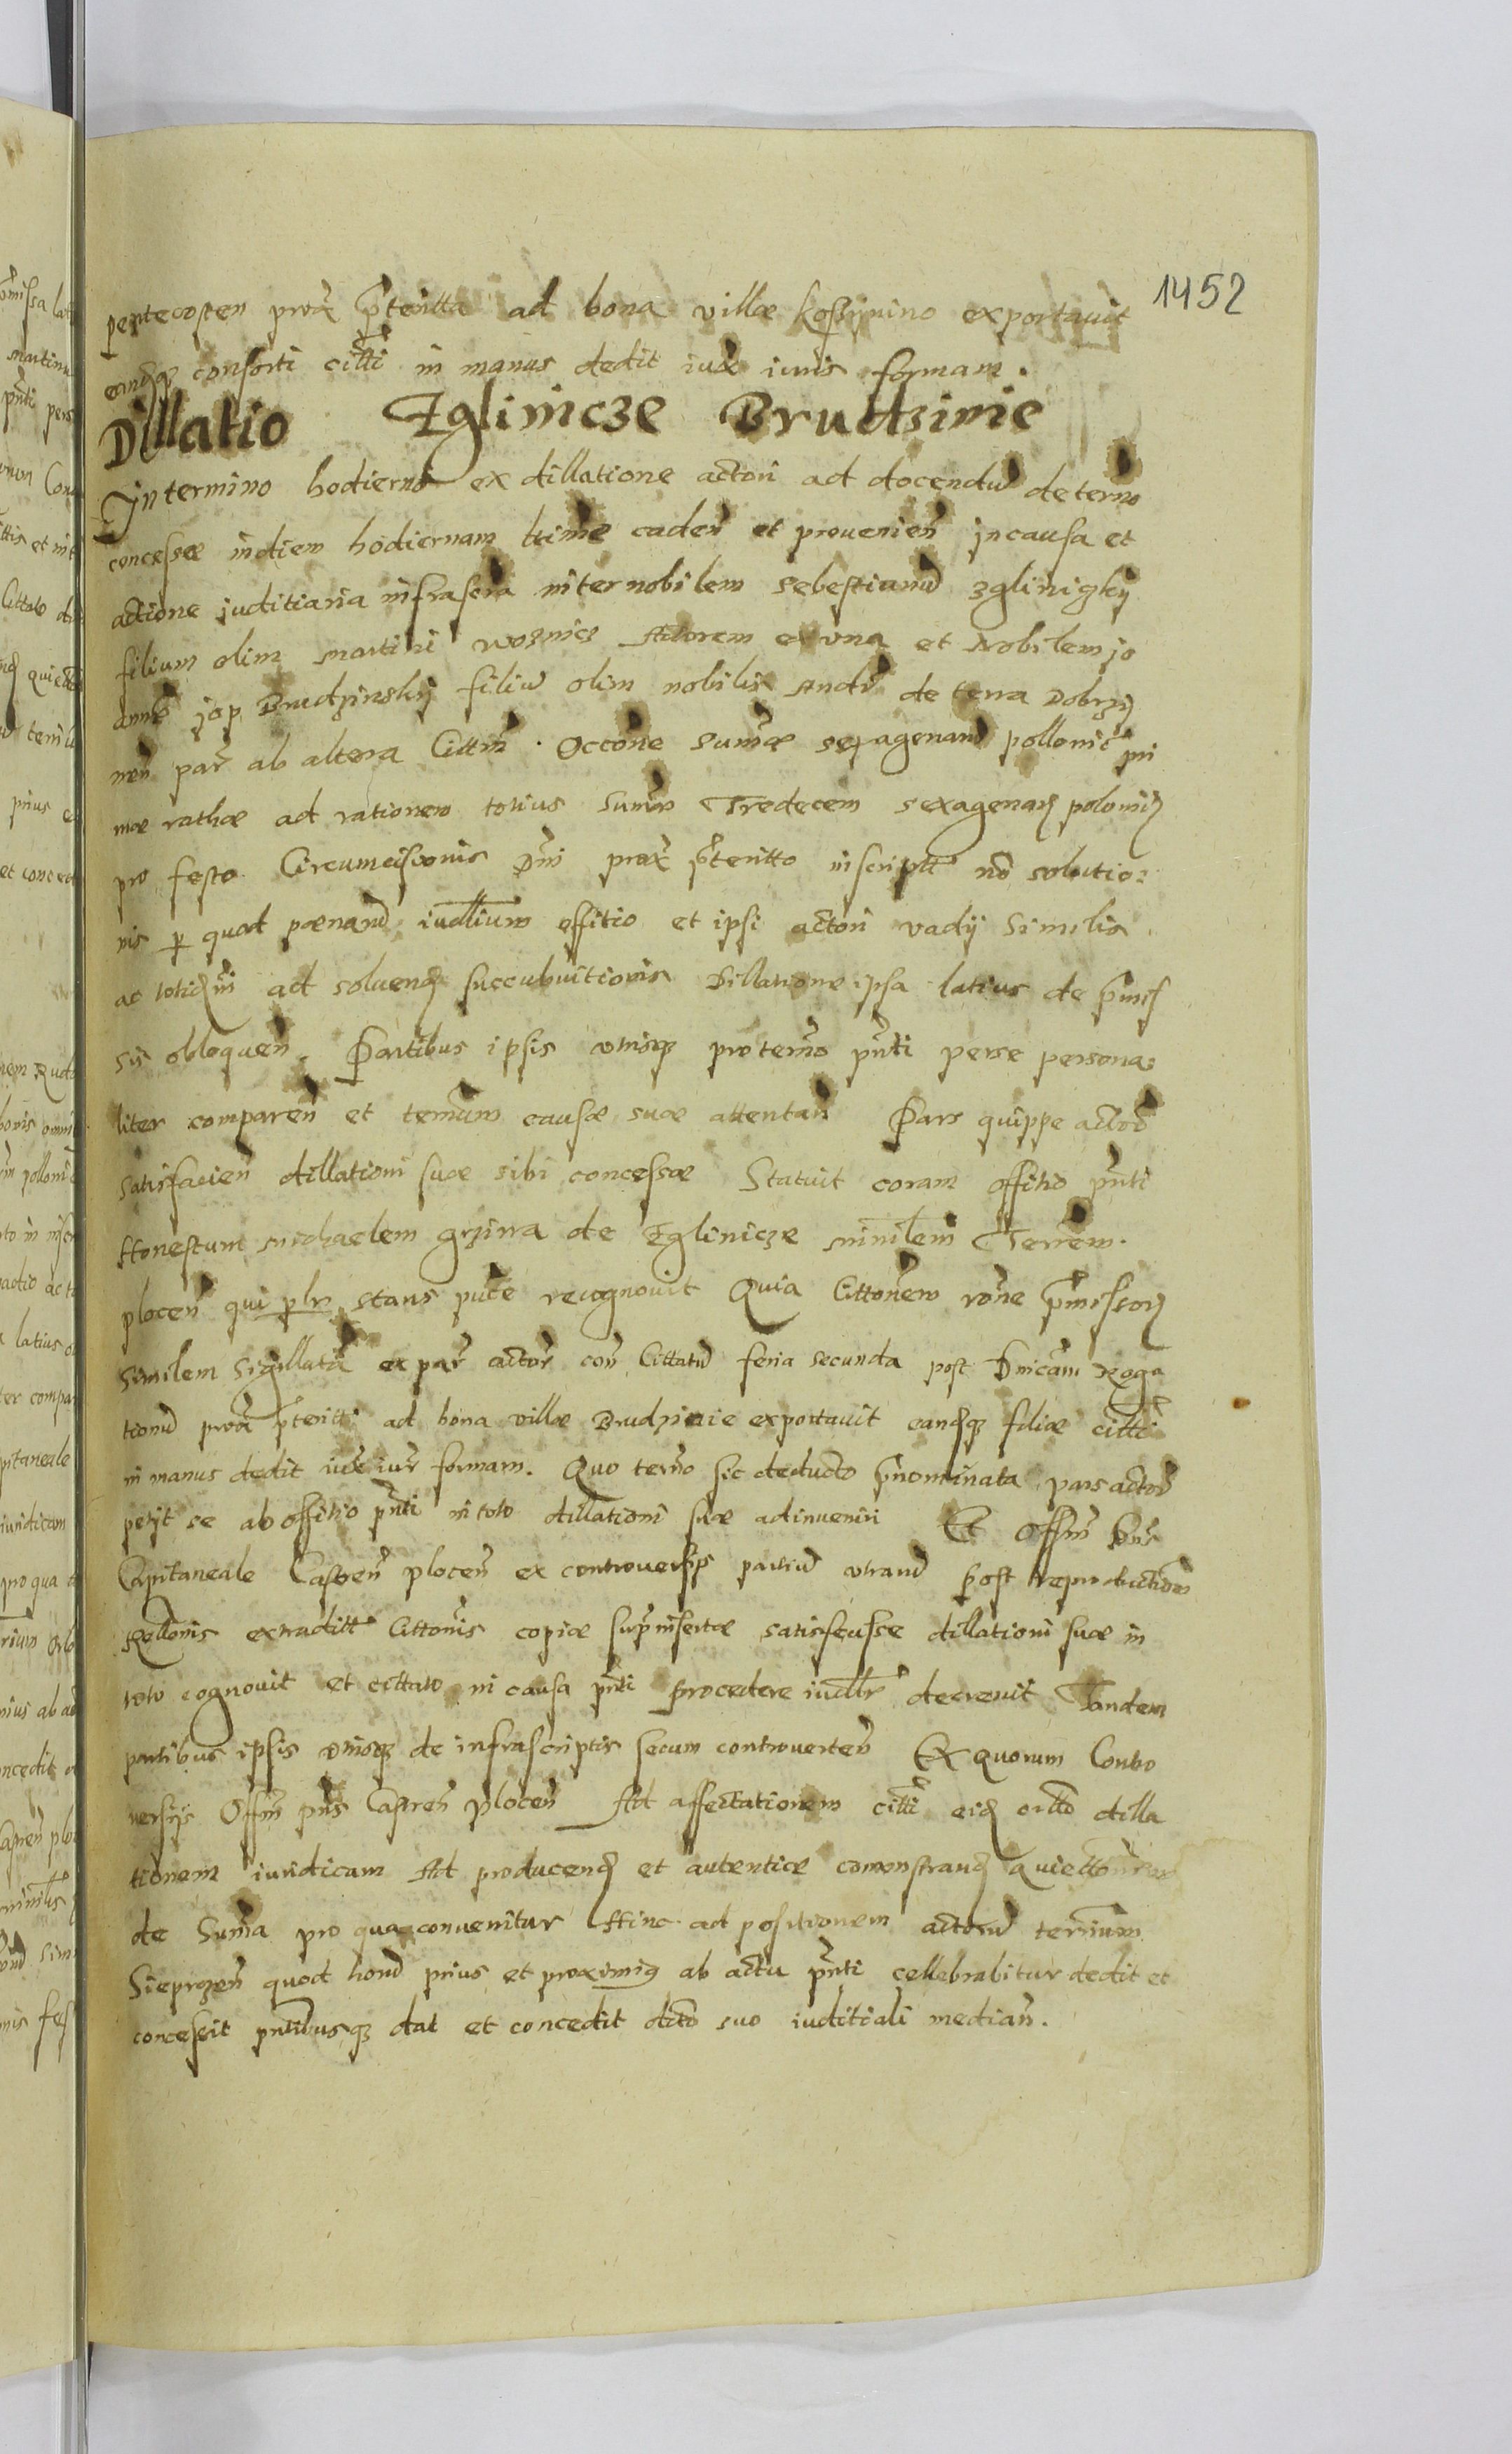 1452
pentecosten prox̃ p̃teritta ad bona villæ kossmino exportavit
eandq3 consorti citti in manus dedit iux̃ iuris formam.
Dillatio Zglinicze Brudzinie
In termino hodierno ex dillatione actori ad docendu de termo
concessæ in diem hodiernam ltime caden̄ et provenien̄ in causa et
actione juditiaria infrascra inter nobilem Sebestianu Zglinigky
filium olim Martini woznicz Actorem ex una et Nobilem jo
annē jop Brudzinsky filiu olim nobilis Andr̄ de terra Dobrzy
nen̄ par̄ ab altera Cittm̄. Occōne Summæ sexagenaru pollonic̄ pri
mæ rathæ ad rationem totius Summæ Tredecem sexagenar polonic
pro festo Circumcisionis Dni prox̃ p̃teritto inscriptt nō solutio:
nis p quod pœnaru iudlium offitio et ipsi actori vadij similis
ac totidm̄ ad soluend succubuitionis Dillatione ipsa latius de p̃mis
sis obloquen̄. Partibus ipsis utrisq3 pro termo pn̄ti per se persona:
liter comparen̄ et termum causæ suæ attentan̄ Pars quippe actor
satisfacien̄ dillationi suæ sibi concessæ Statuit coram offitio pn̄ti
Honestum Michaelem grzirra de Zglinicze minilem Terrem.
plocen̄ qui plr̄ stans puce recognovit Quia Cittonem rōne p̃missor
similem sigillata ex par̄ actor̄ con̄ Cittatu feria secunda post Dnicam Roga
tionu prox̃ p̃teritt ad bona villæ Brudzinie exportavit eandq3 filiæ citti
in manus dedit iux̃ iur̄ formam. Quo termo sic deducto p̃nominata pars actor
petijt se ab offitio pn̄ti in toto dillationi suæ adinveniri Et Offm̄ pn̄s
Capitaneale Castren̄ plocen̄ ex controversijs partiu utraru post reproductiōem
Rellōnis extraditt Cittonis copiæ supinsertæ satisfecisse dillationi suæ in
toto cognovit et cittato in causa pn̄ti procedere iudlr̄ decrevit Tandem
partibus ipsis utrisq3 de infrascriptis secum controverten̄ Ex quorum Contro
versijs Offm̄ pn̄s Castren̄ plocen̄ Ad affectationem citti eid citto dilla
tionem iuridicam Ad producend et autentice comonstrand quiettōnem
de Summa pro qua convenitur Hinc ad positionem actoru terrium
Sieprczen̄ quod horu prius et proximis ab actu pn̄ti cellebrabitur dedit et
concessit pn̄tibusq3 dat et concedit dcto suo iuditiali median̄.